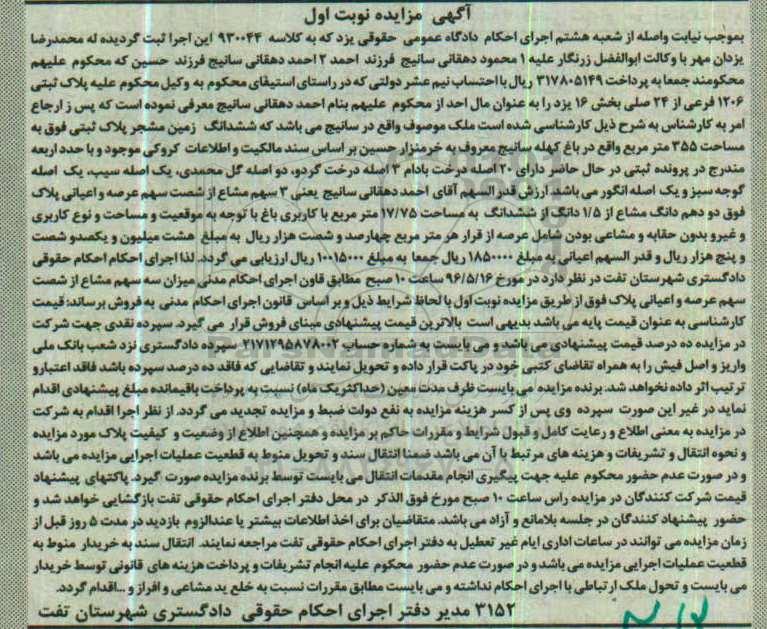 آگهی مزایده نوبت اول
بموجب نیابت واصله از شعبه هشتم اجرای احکام دادگاه عمومی حقوقی یزد که به کلاسه ۹۳۰۰۴۴ این اجرا ثبت گردیده له محمدرضا
یزدان مهر با وکالت ابوالفضل زرنگار علیه ۱ محمود دهقانی سانیج فرزند احمد ۲ احمد دهقانی سانیج فرزند حسین که محکوم علیهم
محکومند جمعا به پرداخت ۳۱۷۸۰۵۱۴۹ ریال با احتساب نیم عشر دولتی که در راستای استیفای محکوم به وکیل محکوم علیه پلاک ثبتی
۱۲۰۶ فرعی از ۲۴ صلی بخش ۱۶ یزد را به عنوان مال احد از محکوم علیهم بنام احمد دهقانی سانیج معرفی نموده است که پس ز ارجاع
امر به کارشناس به شرح ذیل کارشناسی شده است ملک موصوف واقع در سانیج می باشد که ششدانگ زمین مشجر پلاک ثبتی فوق به
مساحت ۳۵۵ متر مربع واقع در باغ کهله سانیج معروف به خرمنزار حسین بر اساس سند مالکیت و اطلاعات کروکی موجود و با حدد اربعه
مندرج در پرونده ثبتی در حال حاضر دارای ۲۰ اصله درخت بادام ۳ اصله درخت گردو، دو اصله گل محمدی، یک اصله سیب، یک اصله
گوجه سبز و یک اصله انگور می باشد. ارزش قدر السهم آقای احمد دهقانی سانیج یعنی ۳ سهم مشاع از شصت سهم عرصه و اعیانی پلاک
فوق دو دهم دانگ مشاع از ۱/۵ دانگ از ششدانگ به مساحت ۱۷/۷۵ متر مربع با کاربری باغ با توجه به موقعیت و مساحت و نوع کاربری
و غیرو بدون حقابه و مشاعی بودن شامل عرصه از قرار هر متر مربع چهارصد و شصت هزار ریال به مبلغ هشت میلیون و یکصدو شصت
و پنج هزار ریال و قدر السهم اعیانی به مبلغ ۱۸۵۰۰۰۰ ریال جمعا به مبلغ ۱۰۰۱۵۰۰۰ ریال ارزیابی می گردد. لذا اجرای احکام احکام حقوقی
دادگستری شهرستان تفت در نظر دارد در مورخ ۹۶/۵/۱۶ ساعت ۱۰ صبح مطابق قاون اجرای احکام مدنی میزان سه سهم مشاع از شصت
سهم عرصه و اعیانی پلاک فوق از طریق مزایده نوبت اول با لحاظ شرایط ذیل و بر اساس قانون اجرای احکام مدنی به فروش برساند: قیمت
کارشناسی به عنوان قیمت پایه می باشد بدیهی است بالاترین قیمت پیشنهادی مبنای فروش قرار می گیرد. سپرده نقدی جهت شرکت
در مزایده ده درصد قیمت پیشنهادی می باشد و می بایست به شماره حساب ۲۱۷۱۲۹۵۸۷۸۰۰۲ سپرده دادگستری نزد شعب بانک ملی
واریز و اصل فیش را به همراه تقاضای کتبی خود در پاکت قرار داده و تحویل نمایند و تقاضایی که فاقد ده درصد سپرده باشد فاقد اعتبارو
ترتیب اثر داده نخواهد شد. برنده مزایده می بایست ظرف مدت معین (حداکثر یک ماه) نسبت به پرداخت باقیمانده مبلغ پیشنهادی اقدام
نماید در غیر این صورت سپرده وی پس از کسر هزینه مزایده به نفع دولت ضبط و مزایده تجدید می گردد. از نظر اجرا اقدام به شرکت
در مزایده به معنی اطلاع و رعایت کامل و قبول شرایط و مقررات حاکم بر مزایده و همچنین اطلاع از وضعیت و کیفیت پلاک مورد مزایده
و نحوه انتقال و تشریفات و هزینه های مرتبط با آن می باشد ضمنا انتقال سند و تحویل منوط به قطعیت عملیات اجرایی مزایده می باشد
و در صورت عدم حضور محکوم علیه جهت پیگیری انجام مقدمات انتقال می بایست توسط برنده مزایده صورت گیرد. پاکتهای پیشنهاد
قیمت شرکت کنندگان در مزایده راس ساعت ۱۰ صبح مورخ فوق الذکر در محل دفتر اجرای احکام حقوقی تفت بازگشایی خواهد شد و
حضور پیشنهاد کنندگان در جلسه بلامانع و آزاد می باشد. متقاضیان برای اخذ اطلاعات بیشتر یا عندالزوم بازدید در مدت ۵ روز قبل از
زمان مزایده می توانند در ساعات اداری ایام غیر تعطیل به دفتر اجرای احکام حقوقی تفت مراجعه نمایند. انتقال سند به خریدار منوط به
قطعیت عملیات اجرایی مزایده می باشد و در صورت عدم حضور محکوم علیه انجام تشریفات و پرداخت هزینه های قانونی توسط خریدار
می بایست و تحول ملک ارتباطی با اجرای احکام نداشته و می بایست مطابق مقررات نسبت به خلع ید مشاعی و افراز و ...اقدام گردد.
۳۱۵۲ مدیر دفتر اجرای احکام حقوقی دادگستری شهرستان تفت